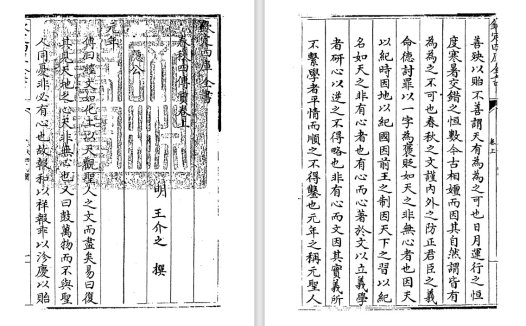 欽定四庫全書
春秋四傳質卷上
明 王介之 撰
隱公
元年
傳曰經文如化工以天觀聖人之文而盡矣易曰復
其見天地之心天非無心也又曰鼓萬物而不與聖
人同憂非必有心也故報和以祥報乖以沴慶以貽
欽定四庫全書
卷上
善殃以貽不善謂天有為為之可也日月運行之恒
度寒暑交錯之恒數今古相嬗而因其自然謂皆有
為為之不可也春秋之文謹內外之防正君臣之義
命德討罪以一字為褒貶如天之非無心者也因天
以紀時因地以紀國因前王之制因天下之習以紀
名如天之非有心者也有心而心著於文以立義學
者研心以逆之不得略也非有心而文因其實義所
不繫學者平情而順之不得鑿也元年之稱元聖人